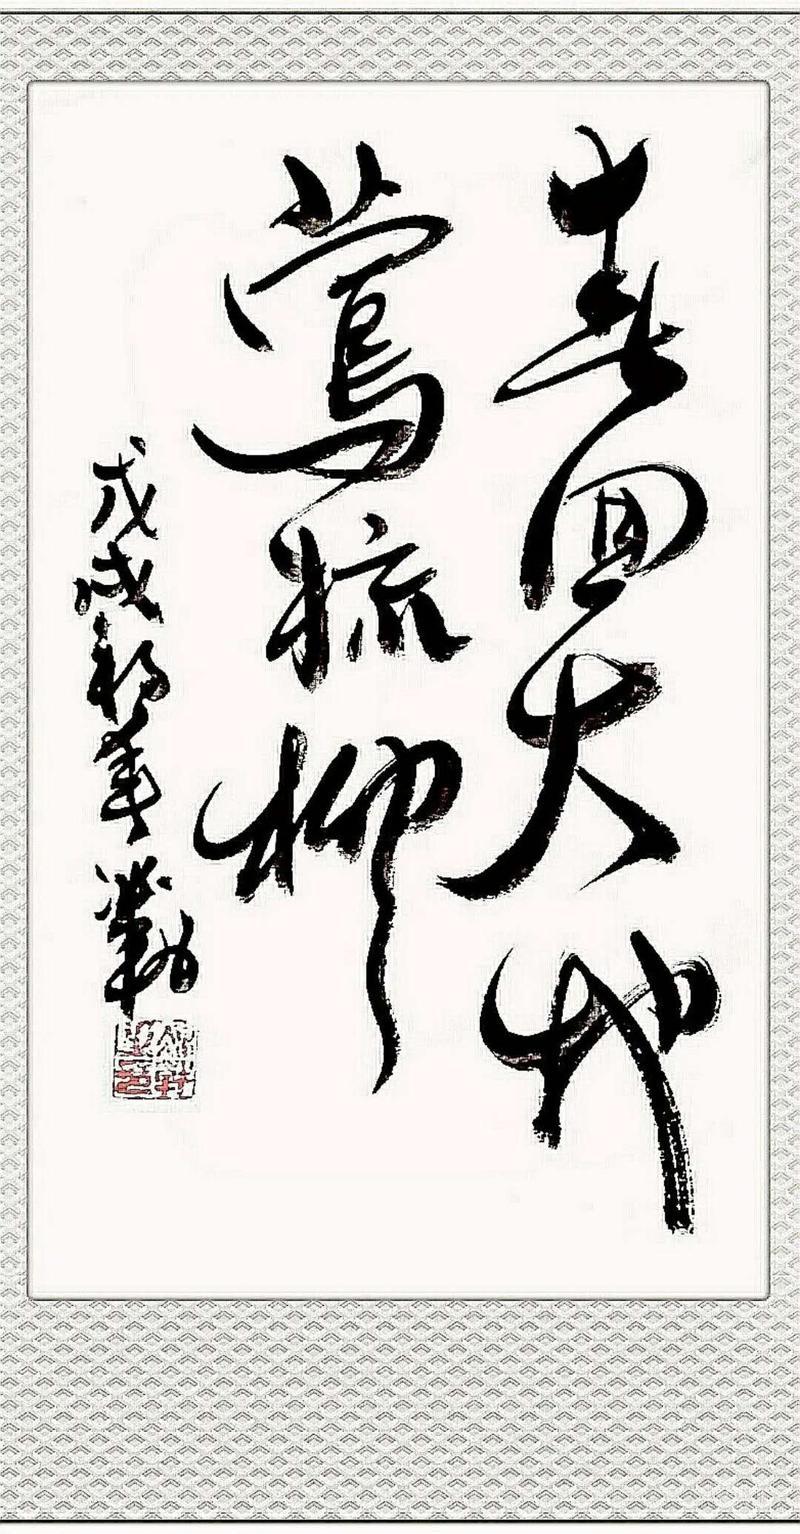 春回大地
莺梳柳
戊戌初春